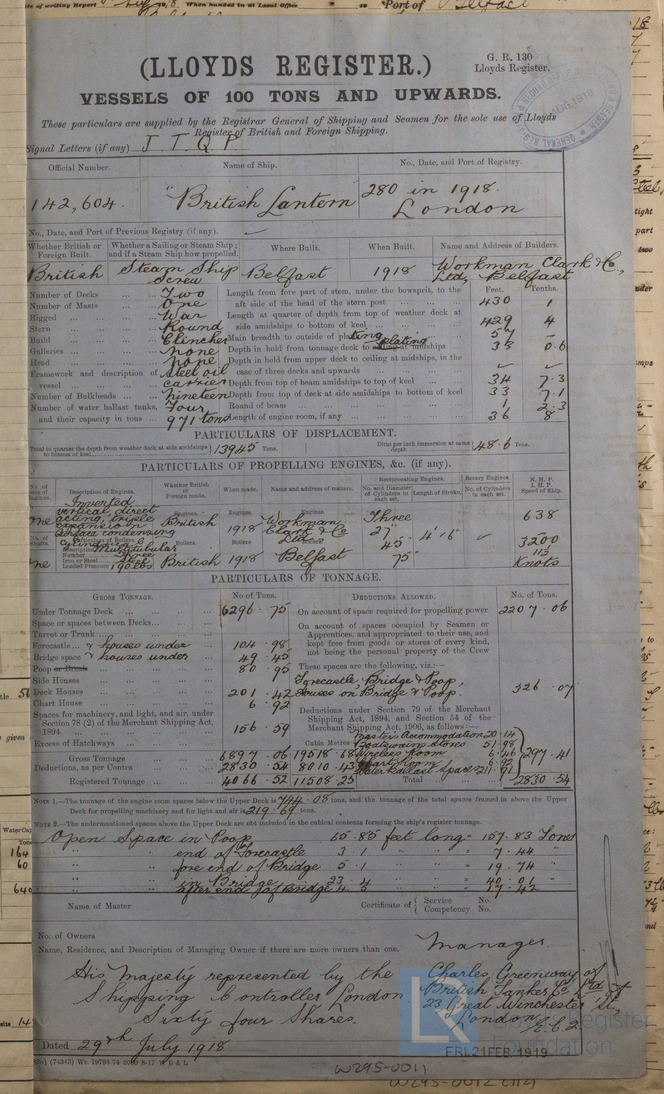 ts of writing Report 18 When handed in at Local Office 10 Port of Belfast
(LLOYDS REGISTER.)
G. R. 130
Lloyds Register.
VESSELS OF 100 TONS AND UPWARDS.
These particulars are supplied by the Registrar General of Shipping and Seamen for the sole use of Lloyds
Register of British and Foreign Shipping.
Signal Letters (if any) J T Q P
Official Number. Name of Ship. No., Date, and Port of Registry.
142,604. "British Lantern" 280 in 1918.
London
No., Date, and Port of Previous Registry (if any).
Whether British or Foreign Built. Whether a Sailing or Steam Ship; and if a Steam Ship how propelled. Where Built. When Built. Name and Address of Builders.
British Steam Ship Screw Belfast 1918 Workman Clark & Co, Ltd, Belfast
Feet. Tenths.
Number of Decks Two Length from fore part of stem, under the bowsprit, to the aft side of the head of the stern post 430 1
Number of Masts One
Rigged War Length at quarter of depth from top of weather deck at side amidships to bottom of keel 429 4
Stern Round
Build Clincher Main breadth to outside of plating 57
Galleries none Depth in hold from tonnage deck to plating at midships 33 0.6
Head none Depth in hold from upper deck to ceiling at midships, in the case of three decks and upwards
Framework and description of vessel Steel oil carrier Depth from top of beam amidships to top of keel 34 7.3
Number of Bulkheads nineteen Depth from top of deck at side amidships to bottom of keel 33 7.1
Number of water ballast tanks, and their capacity in tons Four 971 tons Round of beam 1 2.3
Length of engine room, if any 36 8
PARTICULARS OF DISPLACEMENT.
Total to quarter the depth from weather deck at side amidships to bottom of keel 13945 Tons. Ditto per inch immersion at same depth 48.6 Tons.
PARTICULARS OF PROPELLING ENGINES, &c. (if any).
No. of sets of Engines. Description of Engines. Whether British or Foreign made. When made. Name and address of makers. Reciprocating Engines. No. and Diameter of Cylinders in each set. Length of Stroke. Rotary Engines. No. of Cylinders in each set. N. H. P. I. H. P. Speed of Ship.
One Inverted vertical direct acting, triple expansion surface condensing Engines. British Engines. 1918 Engines. Workman Clark & Co Three 27" 45" 75" 4' 6" 638 3200
Particulars of Boilers. Description Multitubular Number Three Iron or Steel Loaded Pressure 190 lbs Boilers. British Boilers 1918 Boilers Belfast Knots
PARTICULARS OF TONNAGE.
GROSS TONNAGE. No. of Tons. DEDUCTIONS ALLOWED. No. of Tons.
Under Tonnage Deck 6296.75 On account of space required for propelling power 2207.06
Space or spaces between Decks
Turret or Trunk
Forecastle & houses under 104.98
Bridge space & houses under 49.45
Poop or Break 80.95
Side Houses
Deck Houses 201.42
Chart House 6.92
Spaces for machinery, and light, and air, under Section 78 (2) of the Merchant Shipping Act, 1894 156.59
Excess of Hatchways
On account of spaces occupied by Seamen or Apprentices, and appropriated to their use, and kept free from goods or stores of every kind, not being the personal property of the Crew
These spaces are the following, viz.:—
Forecastle, Bridge & Poop, Houses on Bridge & Poop. 326.07
Deductions under Section 79 of the Merchant Shipping Act, 1894, and Section 54 of the Merchant Shipping Act, 1906, as follows:—
Master's Accommodation 20.14
Boatswain Stores 51.98
Wireless Room 6.46
Chart Room 6.92
Water Ballast Space 211.91
297.41
Cubic Metres
Gross Tonnage 6897.06 19518.68
Deductions, as per Contra 2830.54 8010.43
Registered Tonnage 4066.52 11508.25
Total 2830.54
NOTE 1.—The tonnage of the engine room spaces below the Upper Deck is 744.08 tons, and the tonnage of the total spaces framed in above the Upper Deck for propelling machinery and for light and air is 219.69 tons.
NOTE 2.—The undermentioned spaces above the Upper Deck are not included in the cubical contents forming the ship's register tonnage.
Open Space in Poop 65.85 feet long = 157.83 Tons
" " end of Forecastle 3.1 " " 7.44 "
" " fore end of Bridge 5.1 " " 19.74 "
" " in Bridge 23.4 " " 40.01 "
" " after end of Bridge 4.5 " " 17.42
Name of Master Certificate of { Service No. Competency No.
No. of Owners
Name, Residence, and Description of Managing Owner if there are more owners than one. Manager
His Majesty represented by the Charles Greenway of
Shipping Controller London British Tanker Co Ltd
Sixty four Shares. 23 Great Winchester St.
London E.C.2
Dated 29th July 1918
FRI. 21 FEB. 1919
Lloyd's Register Foundation
W295-0011
W295-0012 (1/2)